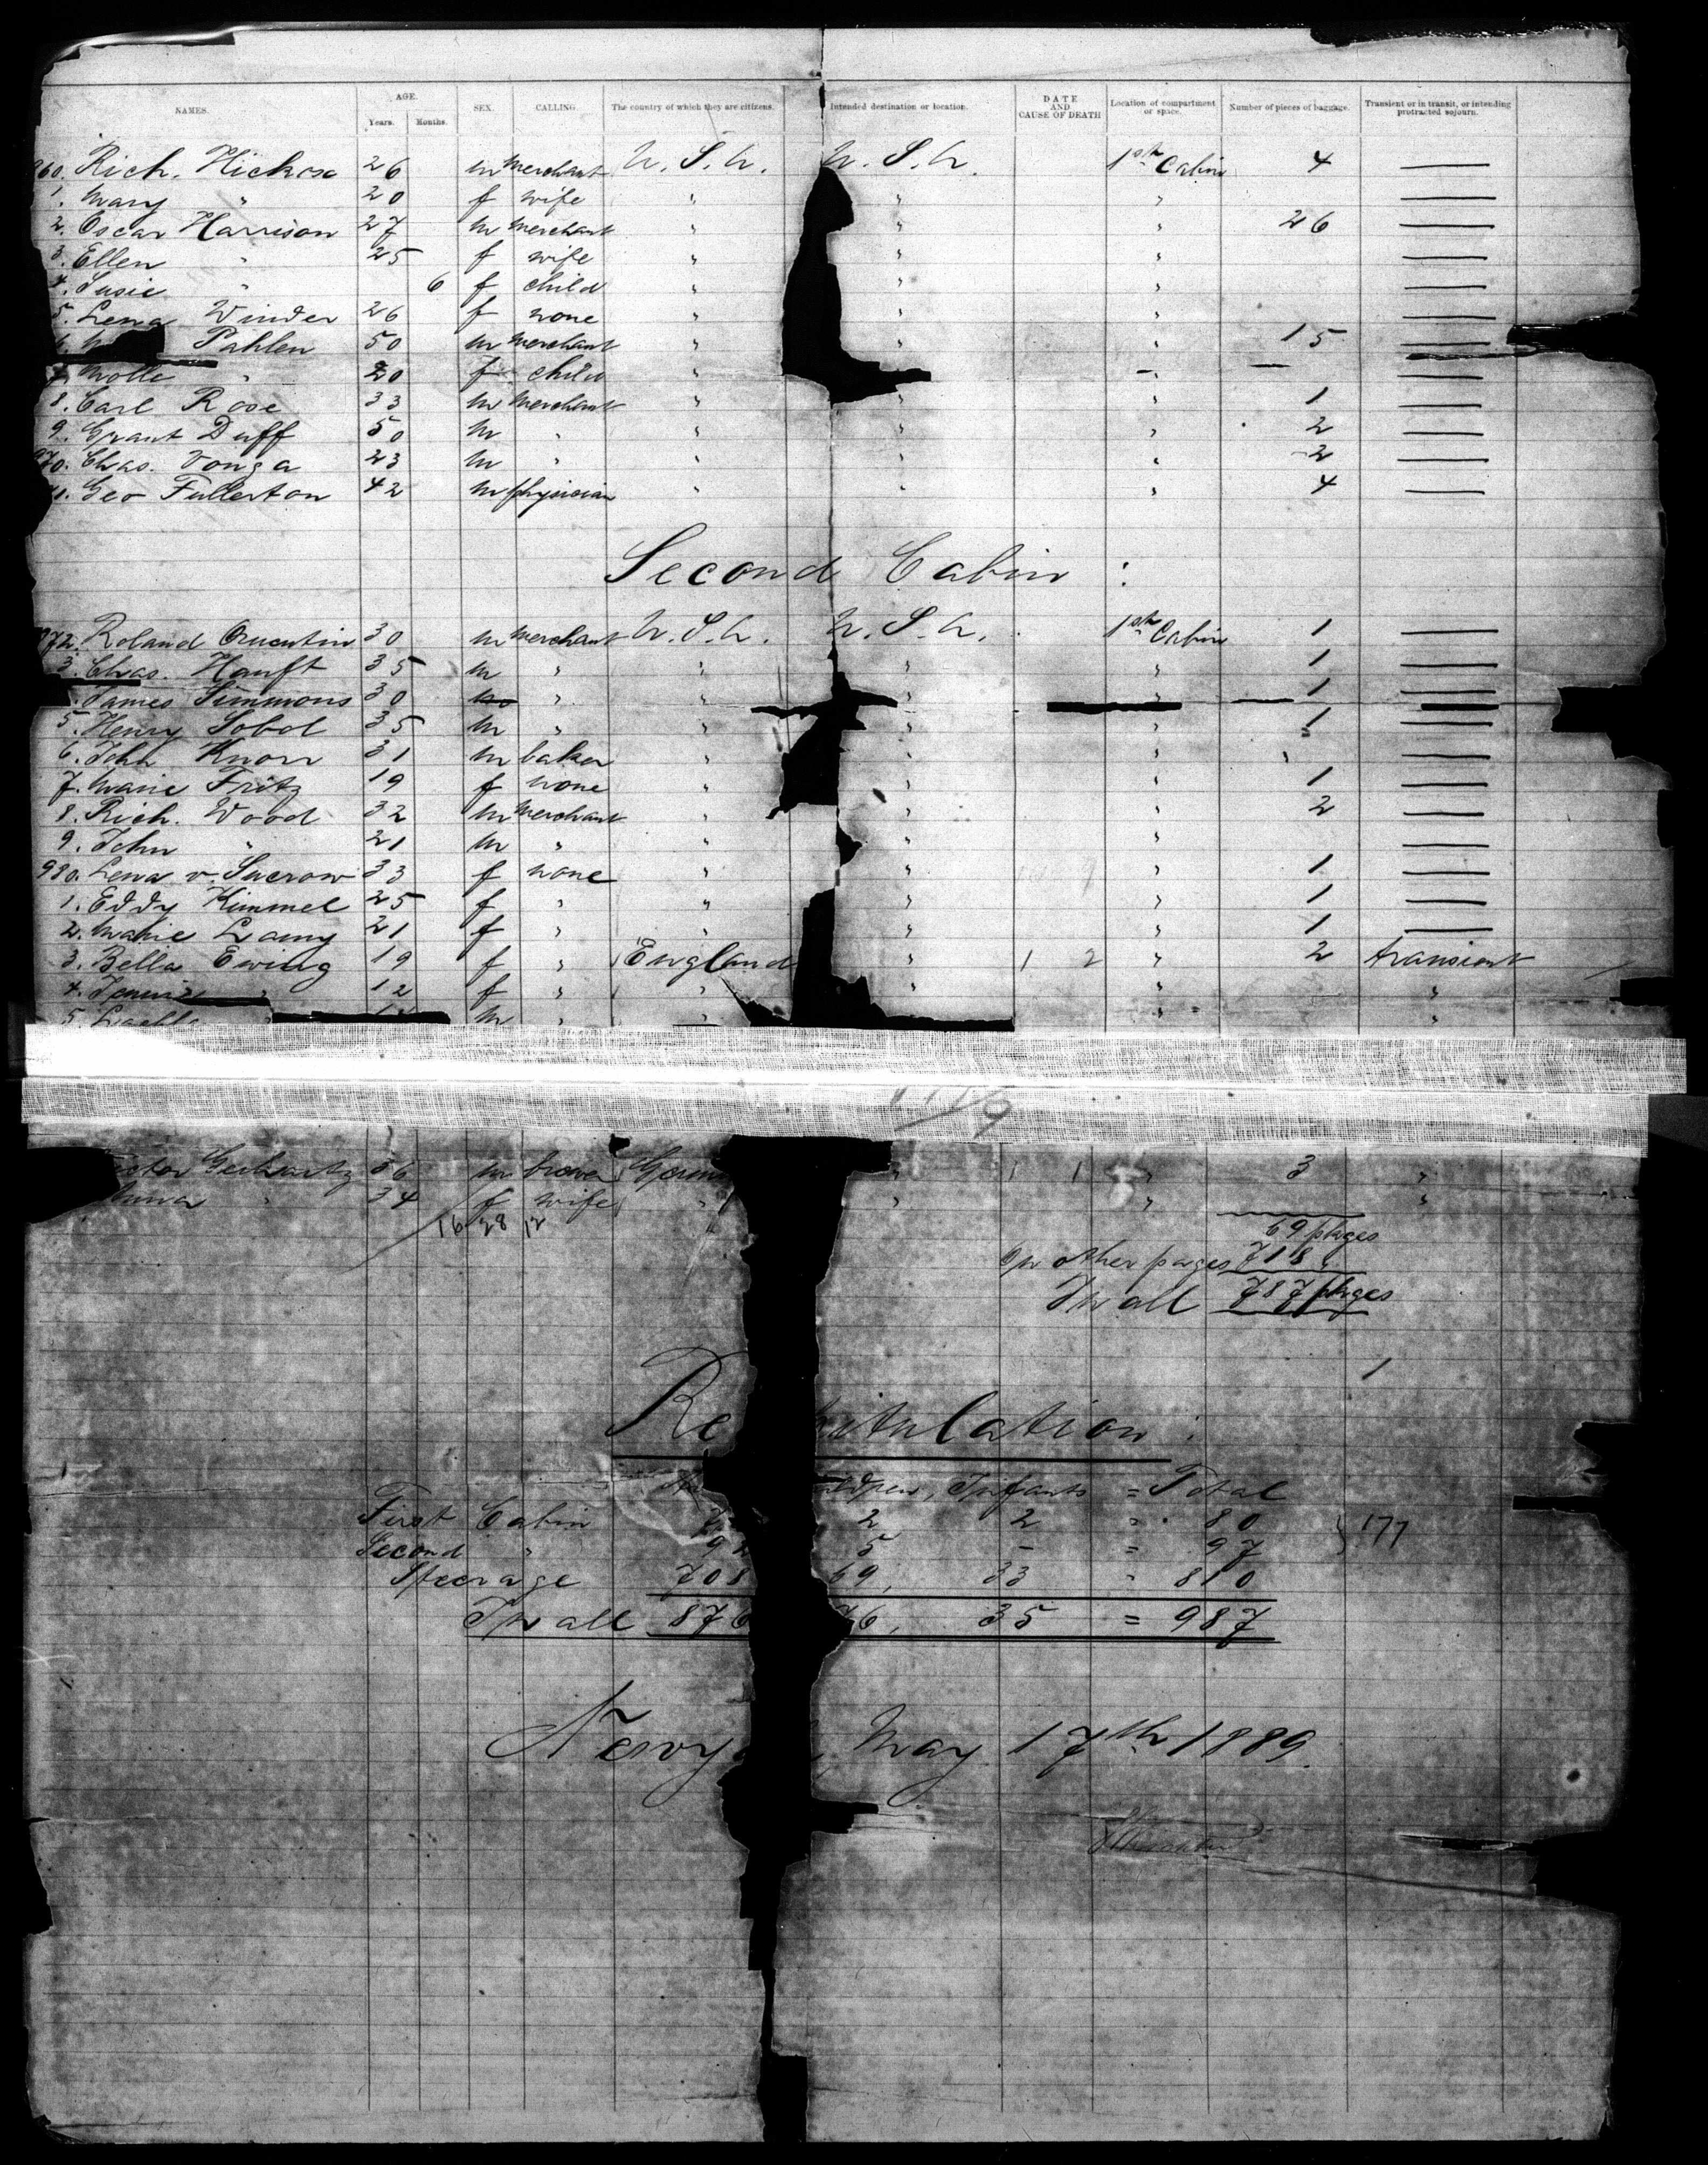 NAMES. AGE. Years. Months. SEX. CALLING. The country of which they are citizens. Intended destination or location. DATE AND CAUSE OF DEATH Location of compartment or space. Number of pieces of baggage. Transient or in transit, or intending protracted sojourn.
960. Rich. Hickox 26 m merchant U.S.A. U.S.A. 1st Cabin 4 —
1. Mary " 20 f wife " " " —
2. Oscar Harrison 27 m merchant " " " 26 —
3. Ellen " 25 f wife " " " —
4. Susie " 6 f child " " " —
5. Lena Winder 26 f none " " " —
Pahlen 50 m merchant " " 15 —
7. Molle " 20 f child " " — —
8. Carl Rose 33 m merchant " " " 1 —
9. Grant Duff 50 m " " " " 2 —
970. Chas. Vonga 23 m " " " " 2 —
71. Geo Fullerton 42 m physician " " " 4 —
Second Cabin :
972. Roland Quentin 30 m merchant U.S.A. U.S.A. 1st Cabin 1 —
3. Chas. Hanft 35 m " " " " 1 —
James Simmons 30 m " " " 1 —
5. Henry Sobol 35 m " " " " 1 —
6. Joh Knorr 31 m baker " " " " —
7. Marie Fritz 19 f none " " 1 —
8. Rich. Wood 32 m merchant " " " 2 —
9. John " 21 m " " " " —
980. Lena v. Sucrow 33 f none " " " 1 —
1. Eddy Kimmel 25 f " " " " 1 —
2. Marie Lamy 21 f " " " " 1 —
3. Bella Ewing 19 f " England " 1 2 " 2 transient
4. " 12 f " " " " "
5. m " " " "
Gerhartz 36 m Germ " 1 1 " 3 "
" 34 f wife " " " "
16 28 12
69 pkges
On other pages 718 "
In all 787 pkges
1
Re pitulation :
ldren, Infants = Total
First Cabin 2 2 = 80
Second " 5 - = 97 } 177
Steerage 708 69, 33 " 810
In all 876 76, 35 = 987
Newy , May 17th 1889.